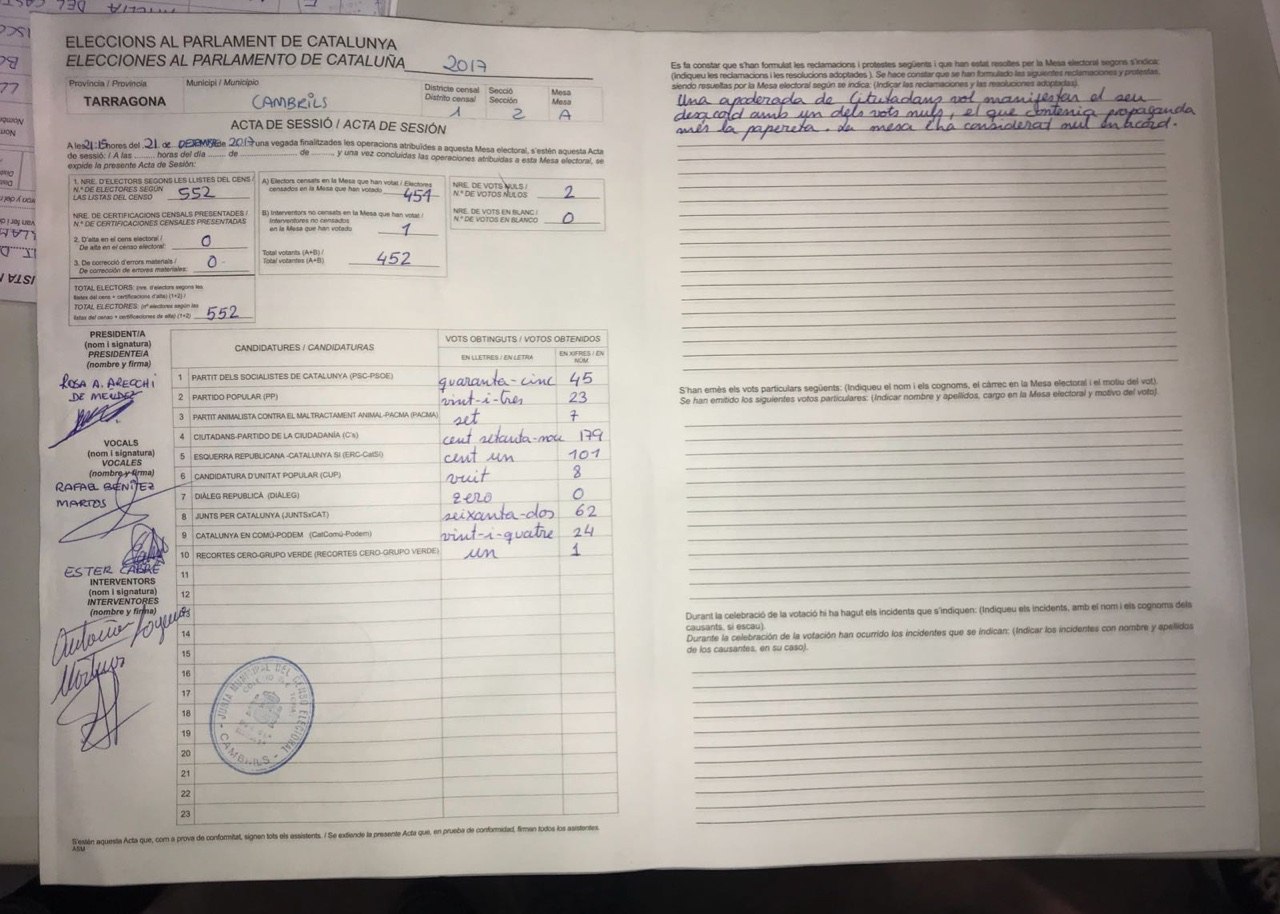 ELECCIONS AL PARLAMENT DE CATALUNYA
ELECCIONES AL PARLAMENTO DE CATALUÑA 2017
Província / Provincia
TARRAGONA
Municipi / Municipio
CAMBRILS
Districte censal
Distrito censal
1
Secció
Sección
2
Mesa
Mesa
A
ACTA DE SESSIÓ / ACTA DE SESIÓN
A les 21:15 hores del 21 de DESEMBRE de 2017 una vegada finalitzades les operacions atribuïdes a aquesta Mesa electoral, s'estén aquesta Acta
de sessió. / A las ......... horas del día ....... de .................. de .........., y una vez concluidas las operaciones atribuidas a esta Mesa electoral, se
expide la presente Acta de Sesión:
1. NRE. D'ELECTORS SEGONS LES LLISTES DEL CENS /
N.º DE ELECTORES SEGÚN
LAS LISTAS DEL CENSO 552
NRE. DE CERTIFICACIONS CENSALS PRESENTADES /
N.º DE CERTIFICACIONES CENSALES PRESENTADAS
2. D'alta en el cens electoral /
De alta en el censo electoral: 0
3. De correcció d'errors materials /
De corrección de errores materiales: 0
TOTAL ELECTORS: (nre. d'electors segons les
llistes del cens + certificacions d'alta) (1+2) /
TOTAL ELECTORES: (nº electores según las
listas del censo + certificaciones de alta) (1+2) 552
A) Electors censats en la Mesa que han votat / Electores
censados en la Mesa que han votado 451
B) Interventors no censats en la Mesa que han votat /
Interventores no censados
en la Mesa que han votado 1
Total votants (A+B) /
Total votantes (A+B) 452
NRE. DE VOTS NULS /
N.º DE VOTOS NULOS 2
NRE. DE VOTS EN BLANC /
N.º DE VOTOS EN BLANCO 0
PRESIDENT/A
(nom i signatura)
PRESIDENTE/A
(nombre y firma)
ROSA A. ARECCHI
DE MENDEZ
VOCALS
(nom i signatura)
VOCALES
(nombre y firma)
RAFAEL BENÍTEZ
MARTOS
ESTER CABRÉ
INTERVENTORS
(nom i signatura)
INTERVENTORES
(nombre y firma)
CANDIDATURES / CANDIDATURAS
VOTS OBTINGUTS / VOTOS OBTENIDOS
EN LLETRES / EN LETRA
EN XIFRES / EN NÚM.
1 PARTIT DELS SOCIALISTES DE CATALUNYA (PSC-PSOE) quaranta-cinc 45
2 PARTIDO POPULAR (PP) vint-i-tres 23
3 PARTIT ANIMALISTA CONTRA EL MALTRACTAMENT ANIMAL-PACMA (PACMA) set 7
4 CIUTADANS-PARTIDO DE LA CIUDADANÍA (C's) cent setanta-nou 179
5 ESQUERRA REPUBLICANA -CATALUNYA SÍ (ERC-CatSí) cent un 101
6 CANDIDATURA D'UNITAT POPULAR (CUP) vuit 8
7 DIÀLEG REPUBLICÀ (DIÀLEG) zero 0
8 JUNTS PER CATALUNYA (JUNTSxCAT) seixanta-dos 62
9 CATALUNYA EN COMÚ-PODEM (CatComú-Podem) vint-i-quatre 24
10 RECORTES CERO-GRUPO VERDE (RECORTES CERO-GRUPO VERDE) un 1
11
12
13
14
15
16
17
18
19
20
21
22
23
JUNTA MUNICIPAL DEL CENSO ELECTORAL
- CAMBRILS -
S'estén aquesta Acta que, com a prova de conformitat, signen tots els assistents. / Se extiende la presente Acta que, en prueba de conformidad, firman todos los asistentes.
ASM
Es fa constar que s'han formulat les reclamacions i protestes següents i que han estat resoltes per la Mesa electoral segons s'indica:
(Indiqueu les reclamacions i les resolucions adoptades). Se hace constar que se han formulado las siguientes reclamaciones y protestas,
siendo resueltas por la Mesa electoral según se indica: (Indicar las reclamaciones y las resoluciones adoptadas).
Una apoderada de Ciutadans vol manifestar el seu
desacord amb un dels vots nuls, el que contenia propaganda
més la papereta. La mesa l'ha considerat nul en acord.
S'han emès els vots particulars següents: (Indiqueu el nom i els cognoms, el càrrec en la Mesa electoral i el motiu del vot).
Se han emitido los siguientes votos particulares: (Indicar nombre y apellidos, cargo en la Mesa electoral y motivo del voto).
Durant la celebració de la votació hi ha hagut els incidents que s'indiquen: (Indiqueu els incidents, amb el nom i els cognoms dels
causants, si escau).
Durante la celebración de la votación han ocurrido los incidentes que se indican: (Indicar los incidentes con nombre y apellidos
de los causantes, en su caso).